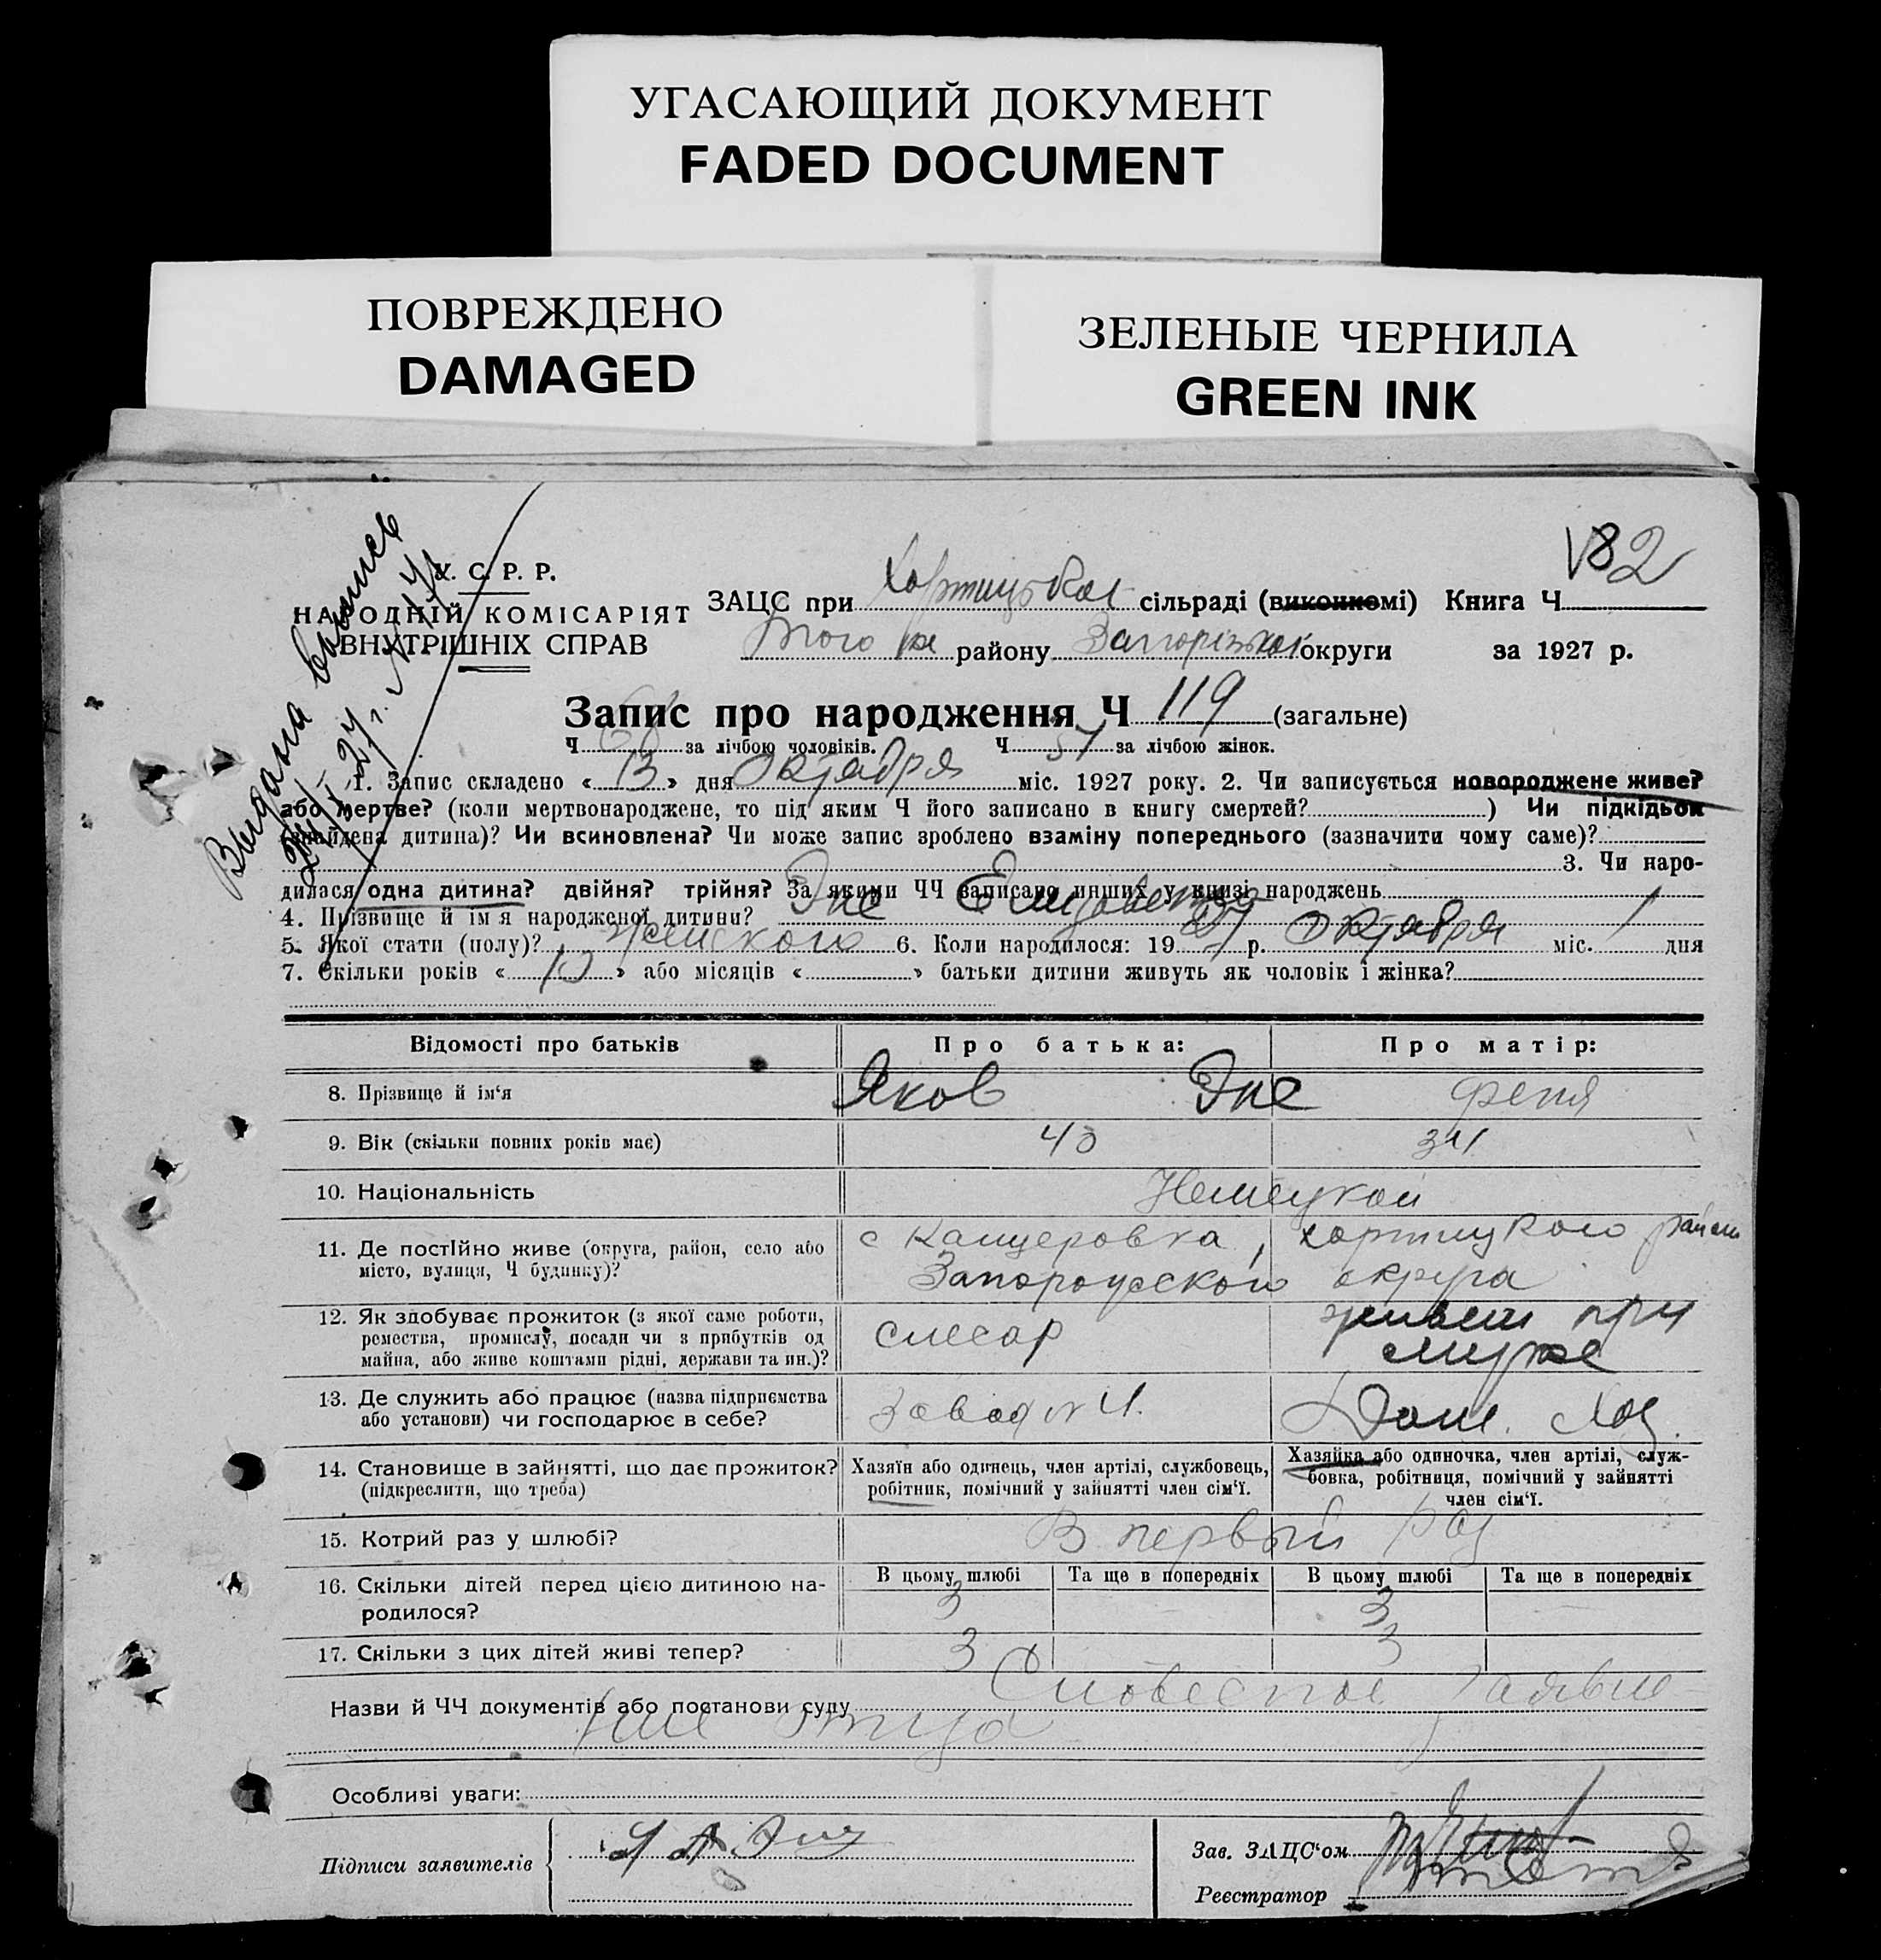 УГАСАЮЩИЙ ДОКУМЕНТ
FADED DOCUMENT
ПОВРЕЖДЕНО
DAMAGED
ЗЕЛЕНЫЕ ЧЕРНИЛА
GREEN INK
182
Выдана выпись
У. С. Р. Р.
НАРОДНІЙ КОМІСАРІЯТ
ВНУТРІШНІХ СПРАВ
ЗАЦС при Хортицької сільраді (виконкомі) Книга Ч
того же району Запорізької округи за 1927 р.
Запис про народження Ч 119 (загальне)
Ч за лічбою чоловіків. Ч 57 за лічбою жінок.
1. Запис складено «13» дня Октября міс. 1927 року. 2. Чи записується новороджене живе?
або мертве? (коли мертвонароджене, то під яким Ч його записано в книгу смертей? ) Чи підкідьок
(знайдена дитина)? Чи всиновлена? Чи може запис зроблено взаміну попереднього (зазначити чому саме)?
3. Чи наро-
дилася одна дитина? двійня? трійня? За якими ЧЧ записано инших у книзі народжень
4. Прізвище й ім'я народженої дитини? Эпе Елизавета
5. Якої стати (полу)? женского 6. Коли народилося: 1927 р. октября міс. 1 дня
7. Скільки років «10» або місяців « » батьки дитини живуть як чоловік і жінка?
Відомості про батьків Про батька: Про матір:
8. Прізвище й ім'я Яков Эпе Феня
9. Вік (скільки повних років має) 40 34
10. Національність Немецкой
11. Де постІйно живе (округа, район, село або с Канцеровка, хортицкого район
місто, вулиця, Ч будинку)? Запорожского округа
12. Як здобуває прожиток (з якої саме роботи, слесар живет при
ремества, промислу, посади чи з прибутків од муже
майна, або живе коштами рідні, держави та ин.)?
13. Де служить або працює (назва підприємства Завод № 4. Дом. Хоз.
або установи) чи господарює в себе?
14. Становище в зайнятті, що дає прожиток? Хазяїн або одинець, член артілі, службовець, Хазяйка або одиночка, член артілі, служ-
(підкреслити, що треба) робітник, помічний у зайнятті член сім'ї. бовка, робітниця, помічний у зайнятті
член сім'ї.
15. Котрий раз у шлюбі? В первый раз
16. Скільки дітей перед цією дитиною на- В цьому шлюбі Та ще в попередніх В цьому шлюбі Та ще в попередніх
родилося? 3 3
17. Скільки з цих дітей живі тепер? 3 3
Назви й ЧЧ документів або постанови суду Словесное заявле
ние отца
Особливі уваги:
Підписи заявителів
Зав. ЗАЦС'ом
Реєстратор